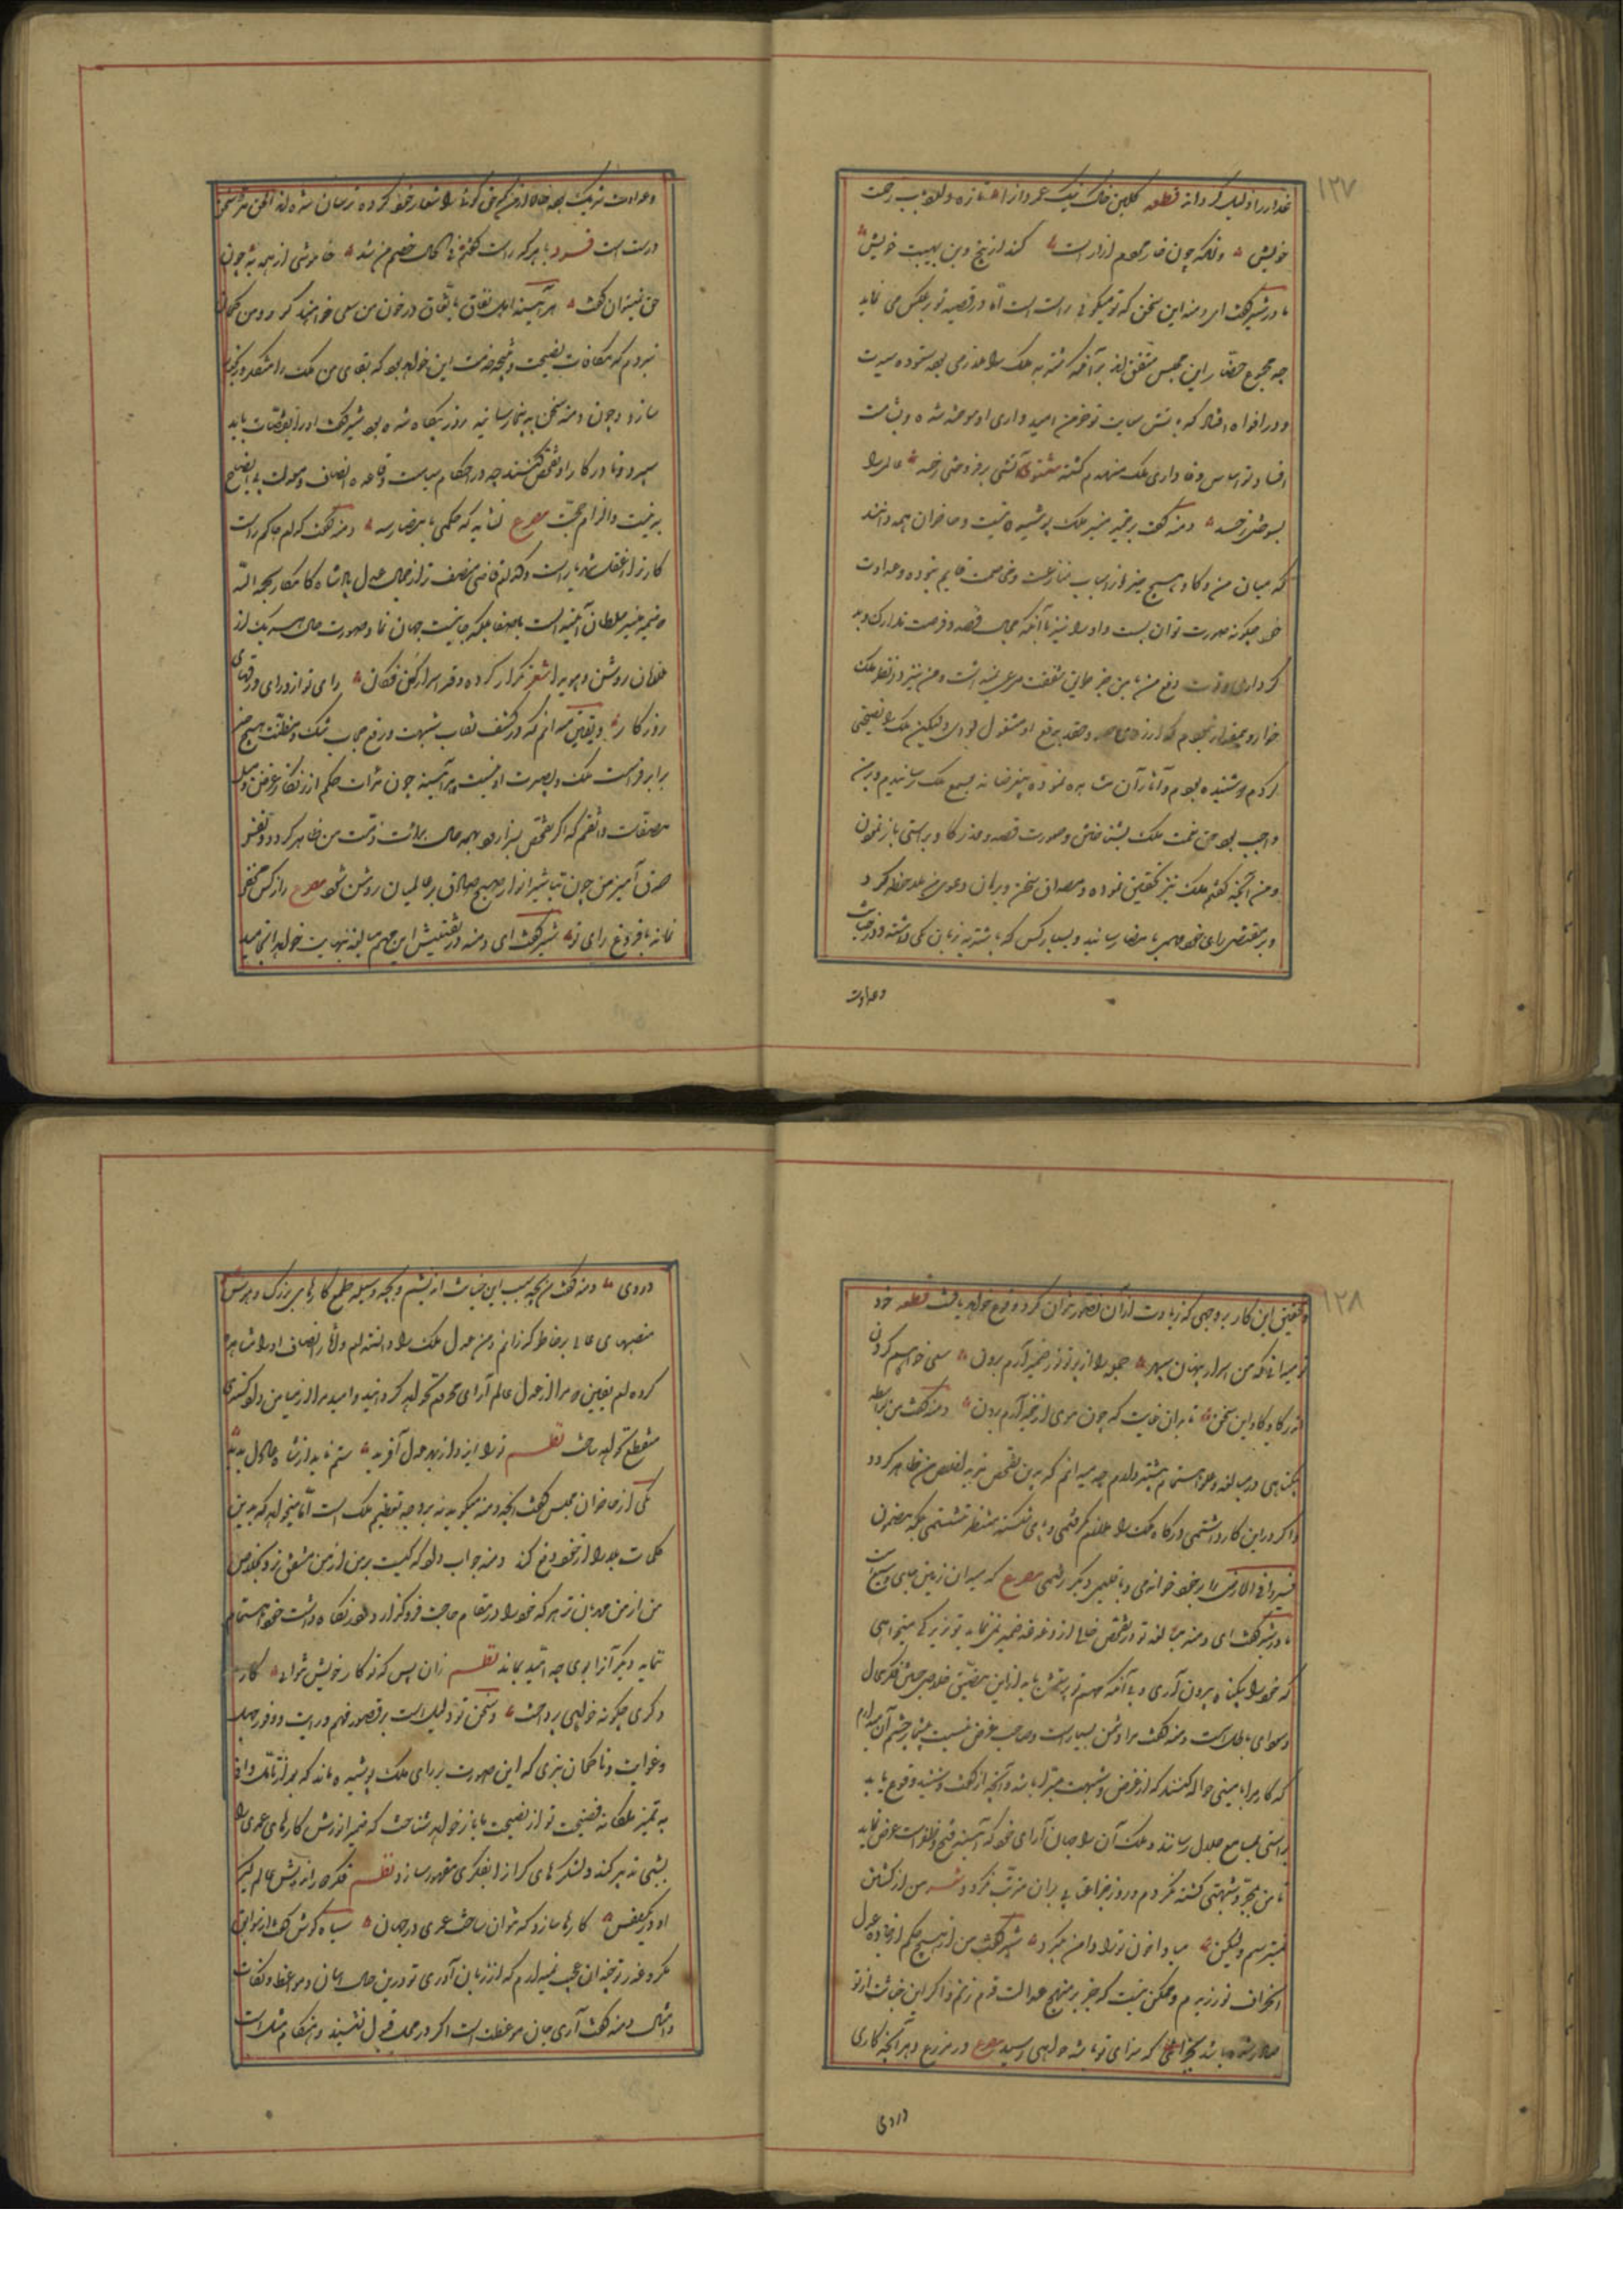 ۱۲۷
غدار را ذلیل گرداند قطعه گلبن خاک نیک عمر دراز است تازه دل بآب رحمت
خویش و آنکه چون خار مردم آزار است کند از بیخ و بن بهیبت خویش
مادر شیر گفت ای دمنه این سخن که تو میگوئی راست است اما در قضیه تو بر عکس می نماید
چه مجموع حضار این مجلس متفق اند بر آنکه شنزبه ملک را ملازمی بود ستوده سیرت
و در افواه افتاد که بآتش سعایت تو خرمن امید واری او سوخته شده و بشامت
افساد تو اساس وفا داری ملک منهدم گشته مثنوی آتشی بر فروختی زخسد عالمی را
بسوختی زخسد دمنه گفت بر ضمیر منیر ملک پوشیده نیست و حاضران همه دانند
که میان من و گاو هیچ چیز از اسباب منازعت و مخاصمت قایم نبوده و عداوت
خود چگونه صورت توان بست و او را نیز با آنکه مجال قصد و فرصت تدارک و بد
کرداری و قوت دفع من
خوار و بیمقدار نبودم که از روی حسد و حقد بدفع او مشغول بودمی ولیکن ملک را نصیحتی
کردم و شنیده بودم و آثار آن مشاهده نموده بیغرضانه بسمع ملک رسانیدم و بر من
واجب بود حق نعمت ملک بشناختن و صورت قصد و غدر گاو براستی باز نمودن
و من آنچه گفتم ملک نیز تحقیق نموده و مصداق سخن و برهان دعوی من ملاحظه کرد
و بر مقتضی رای خود مهمی بامضا رسانید و بسیار کس که با شنزبه زبان یکی داشته و در خیانت
و عداوت
و عداوت شریک بود
درست است فسرد با هر که راست گفتم فی الحال خصم من شد خاموشی از همه به چون
حق نمیتوان گفت هر آئینه اهل نفاق باتفاق در خون من سعی خواهند کرد و من گمان
نبردم که مکافات نصیحت و نتیجه خدمت این خواهد بود که بقای من ملک را متفکر و رنجور
سازد و چون دمنه سخن به اینجا رسانید روز بیگاه شده بود شیر گفت او را بقضات باید
سپرد و تا در کار او تفحص کنند چه در احکام سیاست و قاعده انصاف و معدلت بی ایضاح
به بینت و الزام حجت مصرع نشاید که حکمی بامضا رسد دمنه گفت کدام حاکم راست
کارتر از عقل شهریار است و کدام قاضی منصف تر از جمال عدل پادشاه کامکار بحمد الله
و ضمیر منیر سلطان آئینه است باصفا بلکه جامیست جهان نما و صورت حال هر یک از
ملازمان روشن و هویدا شعر تکرار کرده دفتر اسرار کن فکان رای تو از ورای ورقهای
روزگار و بیقین میدانم که در کشف نقاب شبهت و رفع حجاب شک و مظنت هیچ چیز
برابر فراست ملک و بصیرت او نیست
تصدقات واثقم که اگر تفحص بسزا رود همه حال برائت ذمت من ظاهر گردد و نفس
صدق آمیز من چون تباشیر انوار صبح صادق بر عالمیان روشن شود مصرع راز کس مخفی
نماند با فروغ رای تو شیر گفت ای دمنه در تفتیش این مهم مبالغه بنهایت خواهد انجامید
۱۲۸
و تحقیق این کار بر وجهی که زیادت از آن تصور نتوان کرد وقوع خواهد یافت قطعه خود
تو میدانی که من اسرار پنهان سپهر جمله را از پرتو نور ضمیر آرم برون سعی خواهم کردن
اندر کار گاو این سخن تا بدان غایت که چون موی از خمیر آرم برون دمنه گفت من بواسطه
بیگناهی در مبالغه و غلو اهتمام بیشتر دارم چه میدانم که بدین تفحص مزید اخلاص من ظاهر گردد
و اگر در این کار داشتمی درگاه ملک را ملازم نگرفتمی و پای شکسته منتظر ننشستمی بلکه مضمون
فسیروا فی الارض را بر خود خواندمی و باقلیمی دیگر رفتمی مصرع که میدان زمین جای وسیع است
مادر شیر گفت ای دمنه مبالغه تو در تفحص خالی از دغدغه ضمیر نمی نماید و تو زیرکانه میخواهی
که خود را بیگناه بیرون آری و با آنکه مهم تو بستخن باید از این مضیق خلاصی جستن فکری محال
و سودای باطل است دمنه گفت مرا دشمن بسیار است و صاحب غرض نسبت بیشمار چشم آن میدارم
که کار مرا با امینی حواله کنند که از غرض و شبهت مبرا باشد و آنچه از گفت و شنید وقوع یابد
براستی بمسامع جلال رساند و ملک آن را بجهان آرای خود که آئینه فتح و ظفر است عرض نماید
تا من بمجرد شبهتی کشته نگردم و روز جزا عقابی بدان مترتب نگردد شعر من از کشتن
نمیترسم ولیکن مبادا خون تو را دامن بگیرد شیر گفت من از هیچ حکم از جاده عدل
انحراف نورزیدم و ممکن نیست که جز بر منهج عدالت قدم زنم و اگر این خیانت از تو
صادر شده باشد بجزائی که سزای تو باشد خواهی رسید مصرع در مزرع دهر آنچه کاری
دروی
دروی دمنه گفت من بچه سبب این خیانت اندیشم و بچه وسیله طمع کارهای بزرگ و هوس
منصبهای عالی بر خاطر گذرانم و من عدل ملک را دانسته ام و آثار انصاف او را مشاهده
کرده ام بیقین که مرا از عدل عالم آرای محروم نخواهد گردانید و امید مرا از میامن دادگستری
منقطع نخواهد ساخت نظم ترا ایزد از بهر عدل آفرید ستم ناید از شاه عادل پدید
یکی از حاضران مجلس گفت آنچه دمنه میگوید نه بر وجه تعظیم ملک است اما میخواهد که بدین
کلمات بلا را از خود دفع کند دمنه جواب داد که کیست بر من از من مشفق تر و بنفس
من از من مهربان تر هر که خود را در مقام حاجت فرو گذارد و در نگاه داشت خود اهتمام
ننماید دیگر آنرا بوی چه امید بماند نظم زان پس که تو کار خویش نتوانی کار
دگری چگونه خواهی پرداخت و سخن تو دلیل است بر قصور فهم و وفور جهل
و غوایت و تا گمان نبری که این صورت بر رای ملک پوشیده ماند که بعد از تامل وافی
به تمیز ملکانه فضیحت تو از نصیحت باز خواهد شناخت که ضمیر انورش کارهای عمری را
بشبی تدبیر کند و لشکرهای گران را بفکری مقهور سازد نظم فکر و رای عالم گیر
او در یکنفس کارها سازد که نتوان ساخت عمری در جهان سیاه گوش گفت از سوابق
مکر و غدر تو چندان عجب نمیدارم که از زبان آوری تو درین حال و بیان مواعظ و نکات
و امثال دمنه گفت آری جای موعظت است اگر در محل قبول نشیند و هنگام مثل است